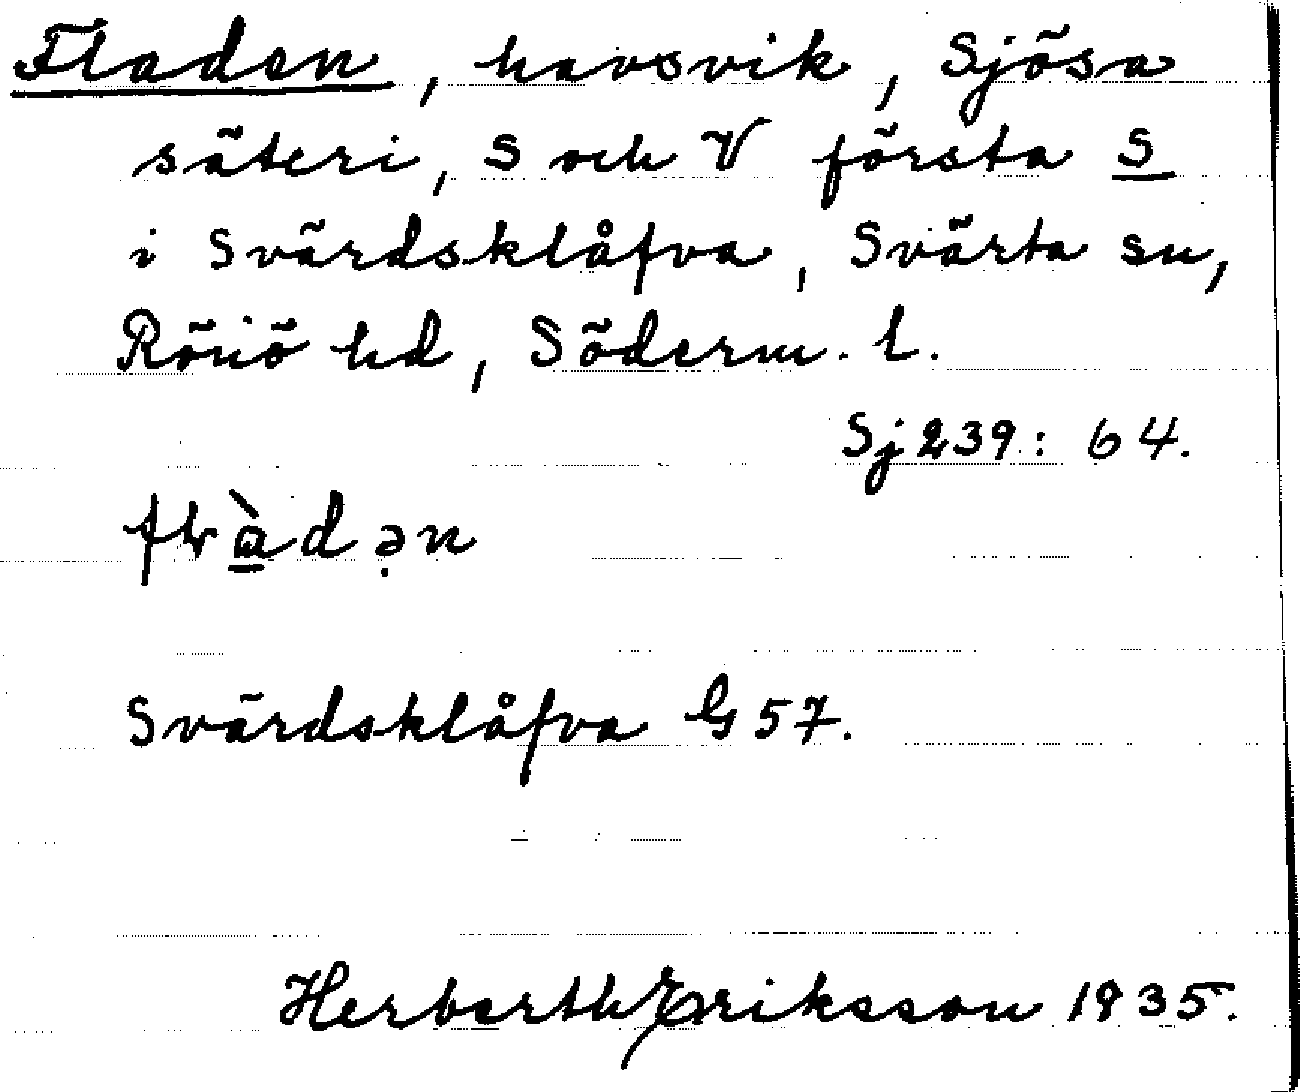 Fladen, havsvik, Sjösa
säteri, S och V första S
i Svärdsklåfva, Svärta sn,
Rönö hd, Söderm. l.
Sj 239 : 64.
flàdən
Svärdsklåfva G 57.
Herberth Eriksson 1935.